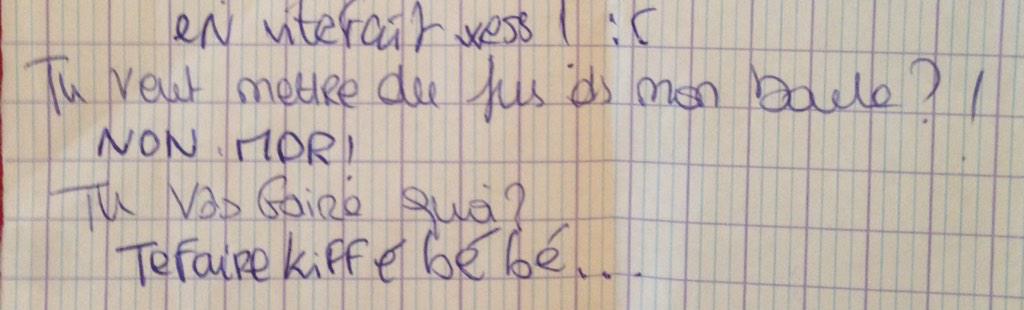 en vitefait wess ! :(
Tu veut mettre du jus ds mon boule ? !
NON. MDR!
Tu vas faire quoi?
Te faire kiffé bébé...